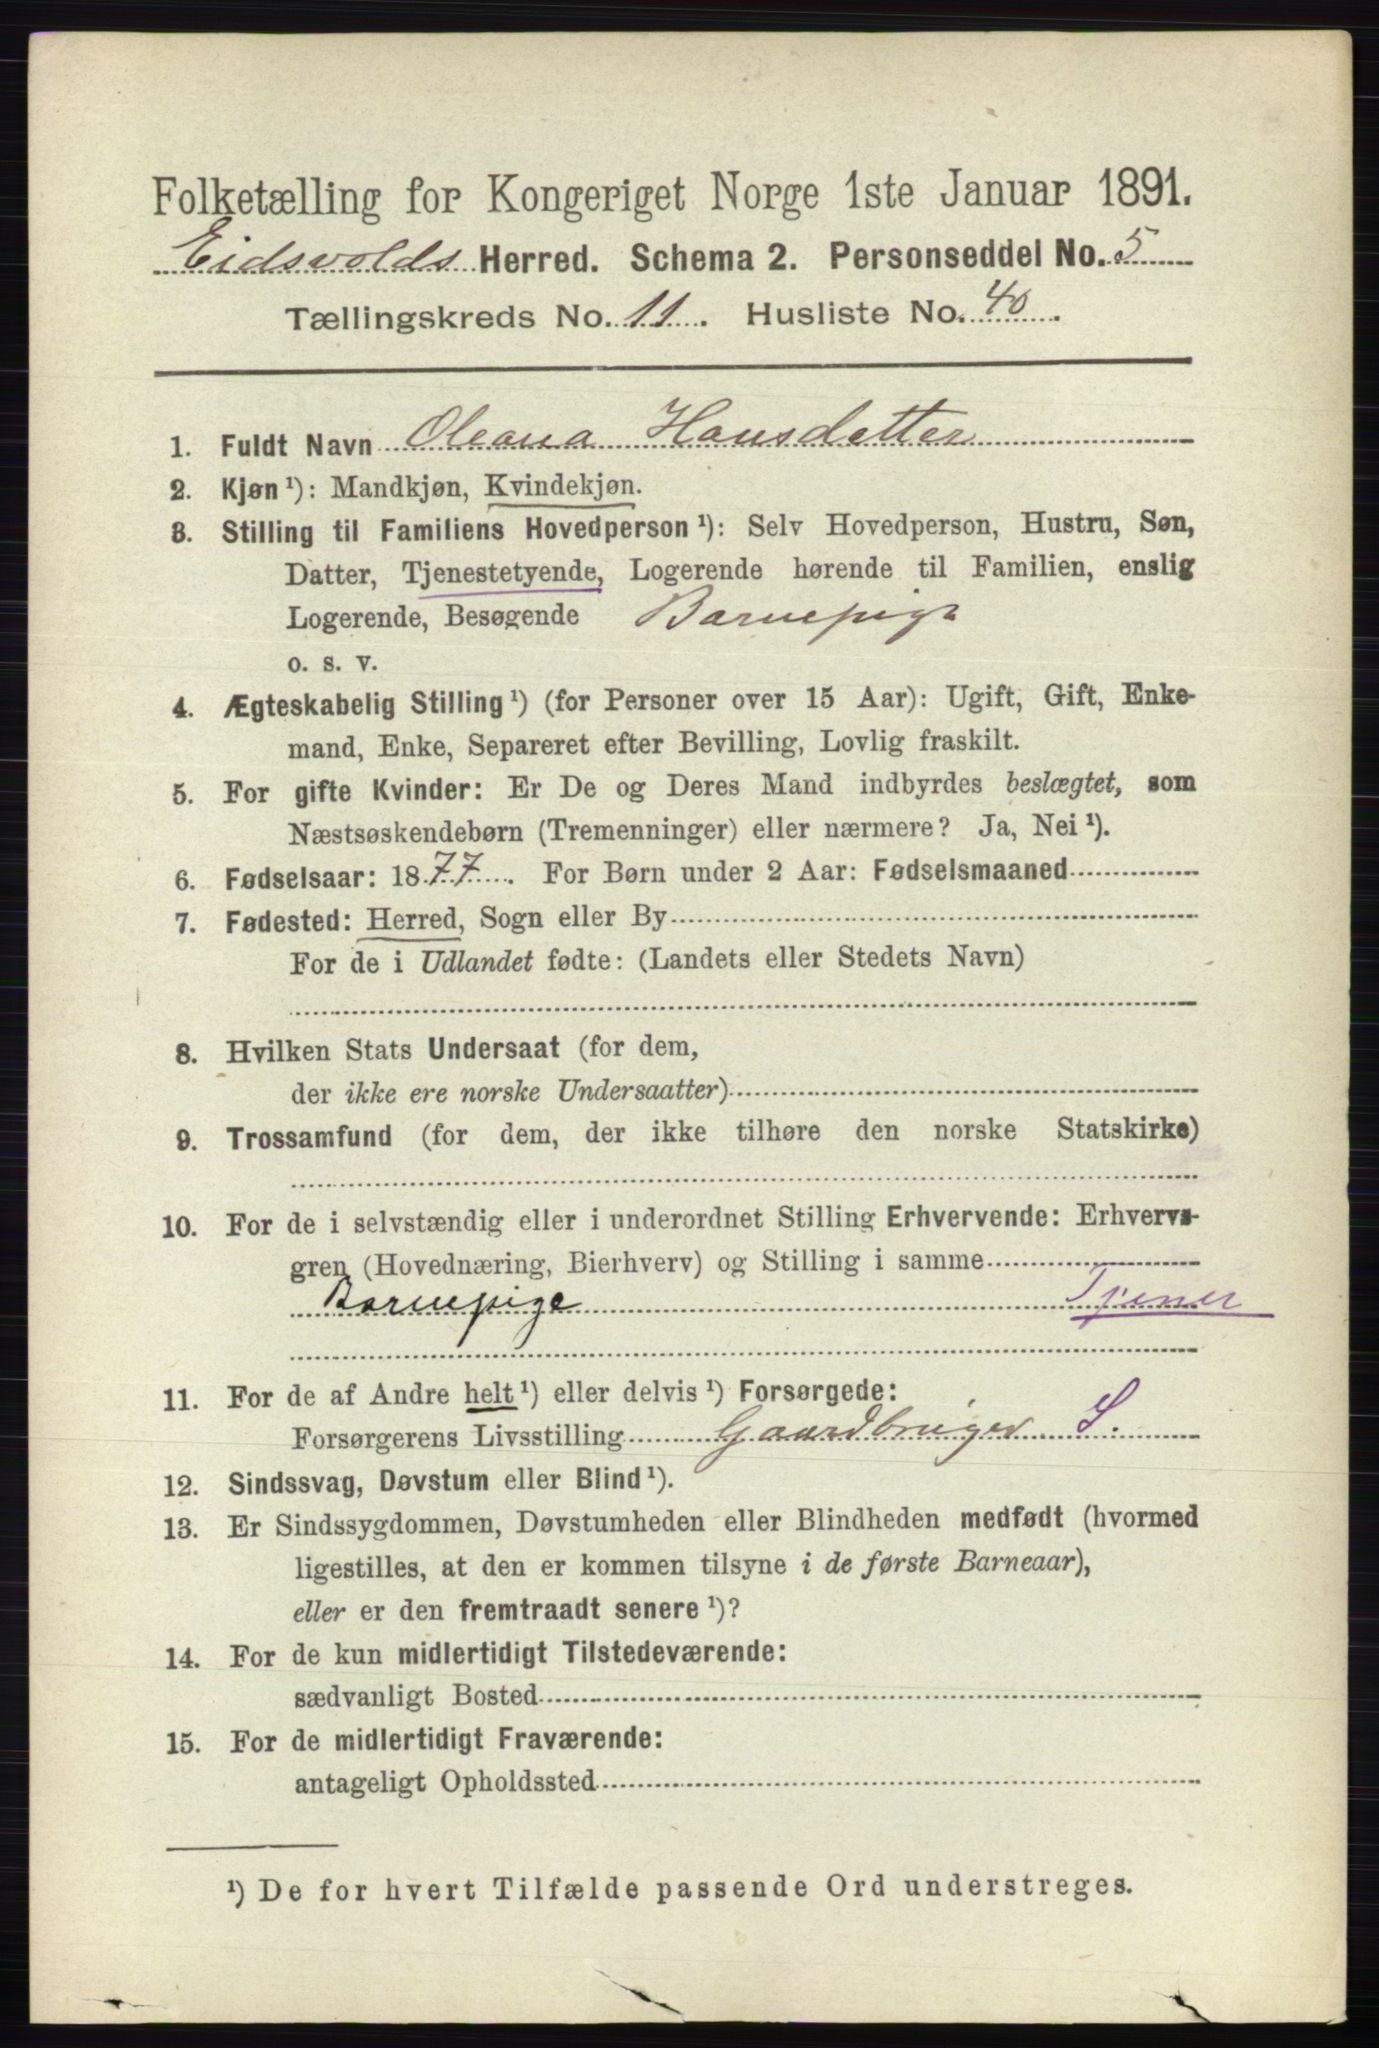 Folketælling for Kongeriget Norge 1ste Januar 1891.
Eidsvolds Herred. Schema 2. Personseddel No. 5
Tællingskreds No. 11. Husliste No. 40.
1. Fuldt Navn Oleana Hansdatter
2. Kjøn ¹): Mandkjøn, Kvindekjøn.
3. Stilling til Familiens Hovedperson ¹): Selv Hovedperson, Hustru, Søn,
Datter, Tjenestetyende, Logerende hørende til Familien, enslig
Logerende, Besøgende Barnepige
o. s. v.
4. Ægteskabelig Stilling ¹) (for Personer over 15 Aar): Ugift, Gift, Enke-
mand, Enke, Separeret efter Bevilling, Lovlig fraskilt.
5. For gifte Kvinder: Er De og Deres Mand indbyrdes beslægtet, som
Næstsøskendebørn (Tremenninger) eller nærmere? Ja, Nei ¹).
6. Fødselsaar: 1877. For Børn under 2 Aar: Fødselsmaaned
7. Fødested: Herred, Sogn eller By
For de i Udlandet fødte: (Landets eller Stedets Navn)
8. Hvilken Stats Undersaat (for dem,
der ikke ere norske Undersaatter)
9. Trossamfund (for dem, der ikke tilhøre den norske Statskirke)
10. For de i selvstændig eller i underordnet Stilling Erhvervende: Erhvervs-
gren (Hovednæring, Bierhverv) og Stilling i samme
Barnepige Tjener
11. For de af Andre helt ¹) eller delvis ¹) Forsørgede:
Forsørgerens Livsstilling Gaardbruger S.
12. Sindssvag, Døvstum eller Blind ¹).
13. Er Sindssygdommen, Døvstumheden eller Blindheden medfødt (hvormed
ligestilles, at den er kommen tilsyne i de første Barneaar),
eller er den fremtraadt senere ¹)?
14. For de kun midlertidigt Tilstedeværende:
sædvanligt Bosted
15. For de midlertidigt Fraværende:
antageligt Opholdssted
¹) De for hvert Tilfælde passende Ord understreges.